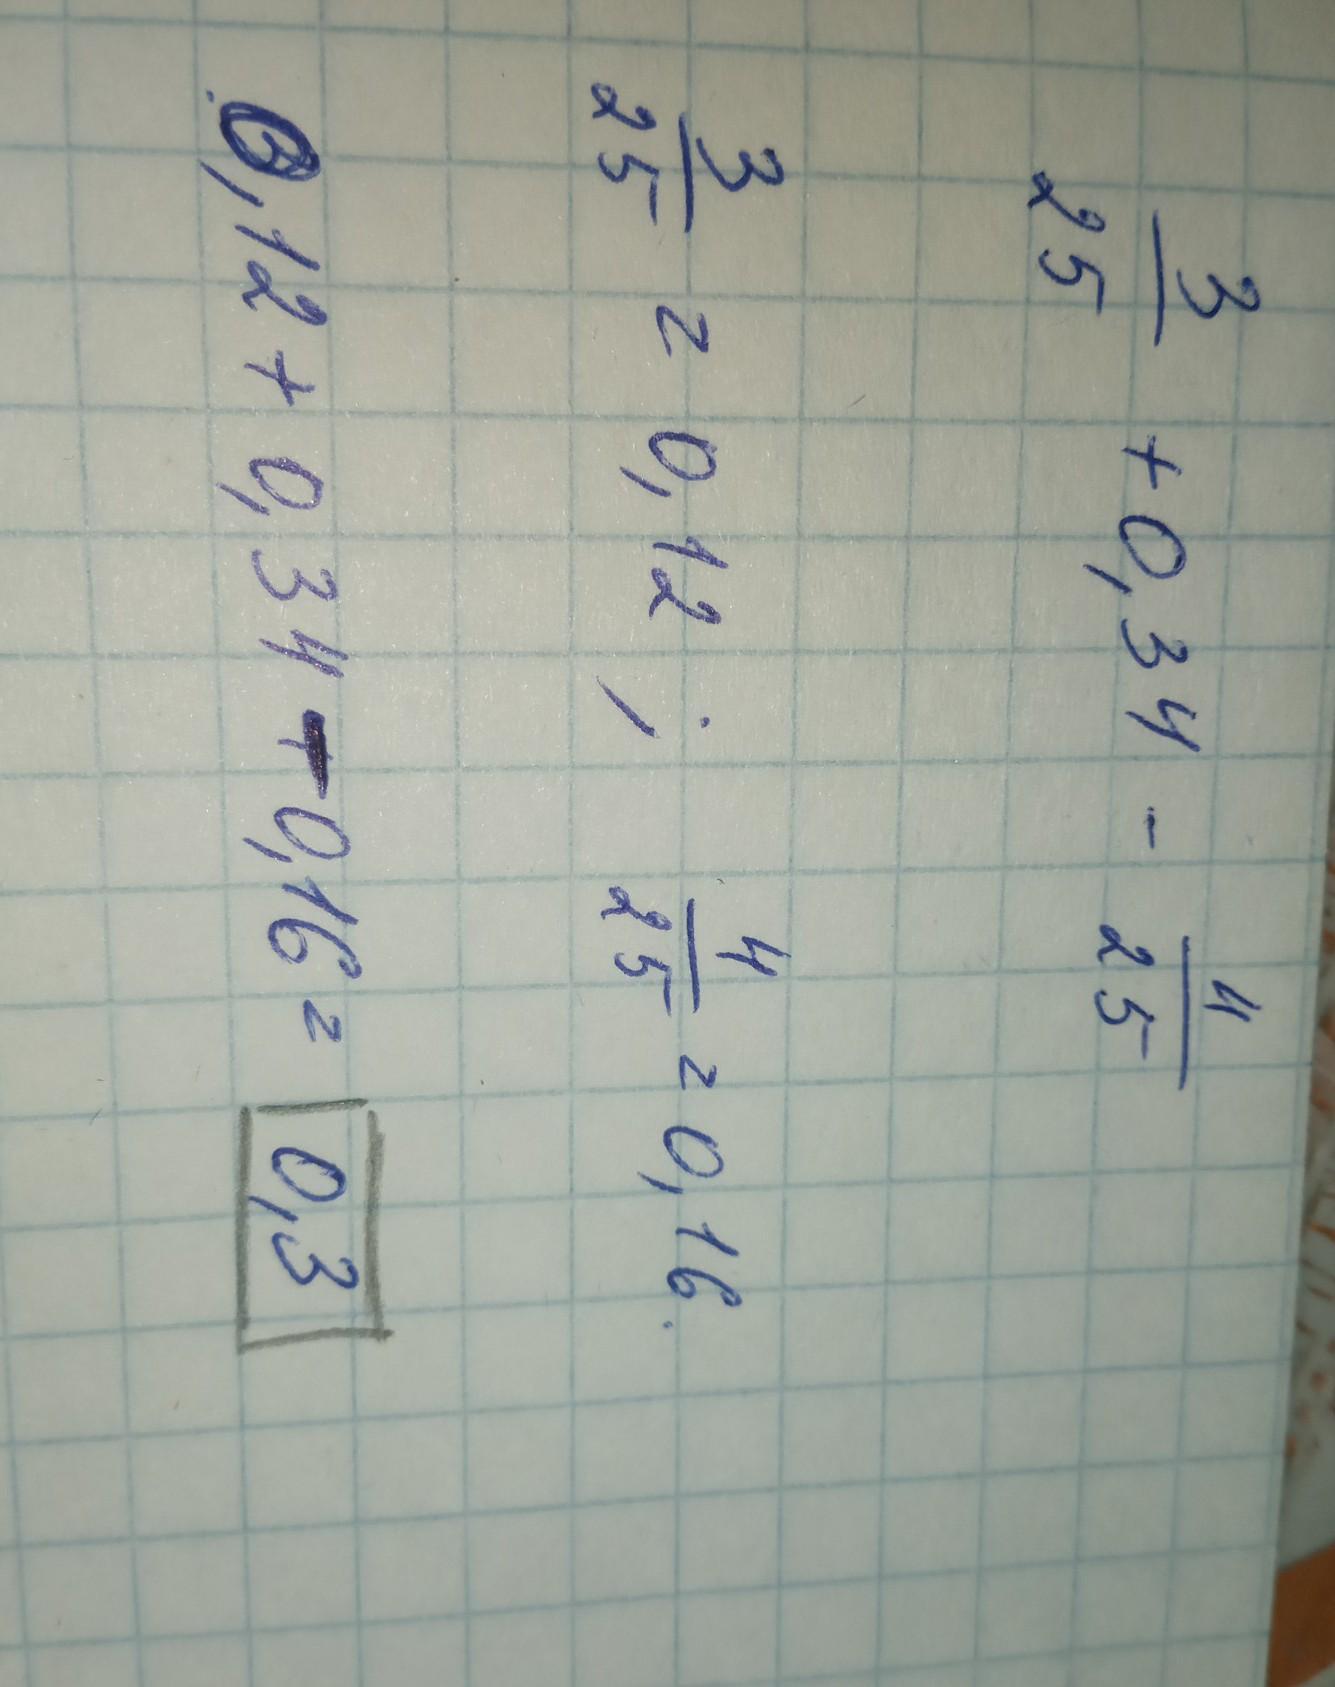 3/25 + 0,34 - 4/25
3/25 = 0,12 ; 4/25 = 0,16.
0,12 + 0,34 - 0,16 = 0,3